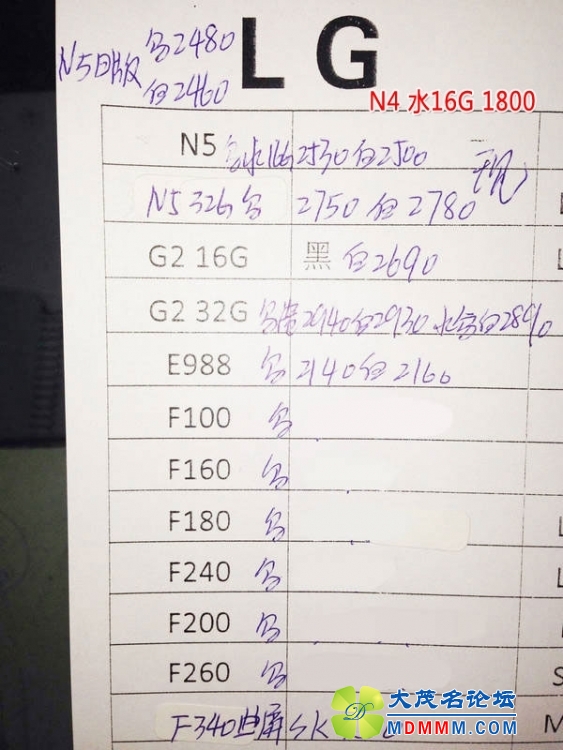 N5日版 黑2480
白2460
LG
N4 水16G 1800
N5 16G 2530 白2500
N5 32G 黑 2750 白2780
G2 16G 黑 白2690
G2 32G 2940白2930 白2890
E988 黑 2140白2160
F100 黑
F160 黑
F180 黑
F240 黑
F200 黑
F260 黑
F340曲屏 SK
L
L
L
L
S
M
大茂名论坛
MDMMM.COM